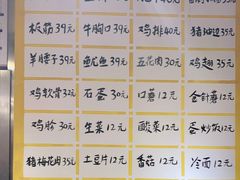 板筋39元 牛胸口39元 鸡排40元
羊腰子39元 鱿鱼39元 五花肉30元 鸡翅35元
鸡软骨32元 石蛋30元 口蘑12元 金针菇12元
鸡胗30元 生菜12元 酸菜12元 蛋炒饭12元
猪梅花肉35元 土豆片12元 香菇12元 冷面12元